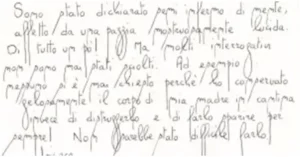 Sono stato dichiarato semi infermo di mente,
affetto da una pazzia mostruosamente lucida.
Di tutto un po'! Ma molti interrogativi
non sono mai stati svolti. Ad esempio
nessuno si è mai chiesto perchè ho conservato
gelosamente il corpo di mia madre in cantina
invece di distruggerlo e di farlo sparire per
sempre! Non sarebbe stato difficile farlo